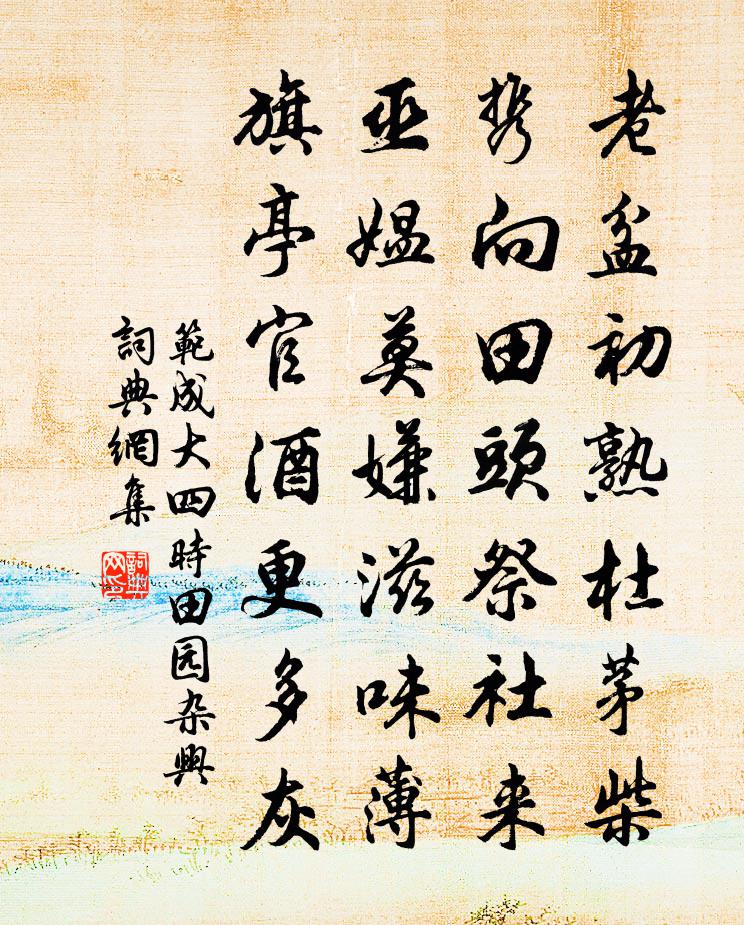 老盆初熟杜茅柴
携向田頭祭社来
巫媪莫嫌滋味薄
旗亭官酒更多灰
範成大四時田园杂興
詞典網集